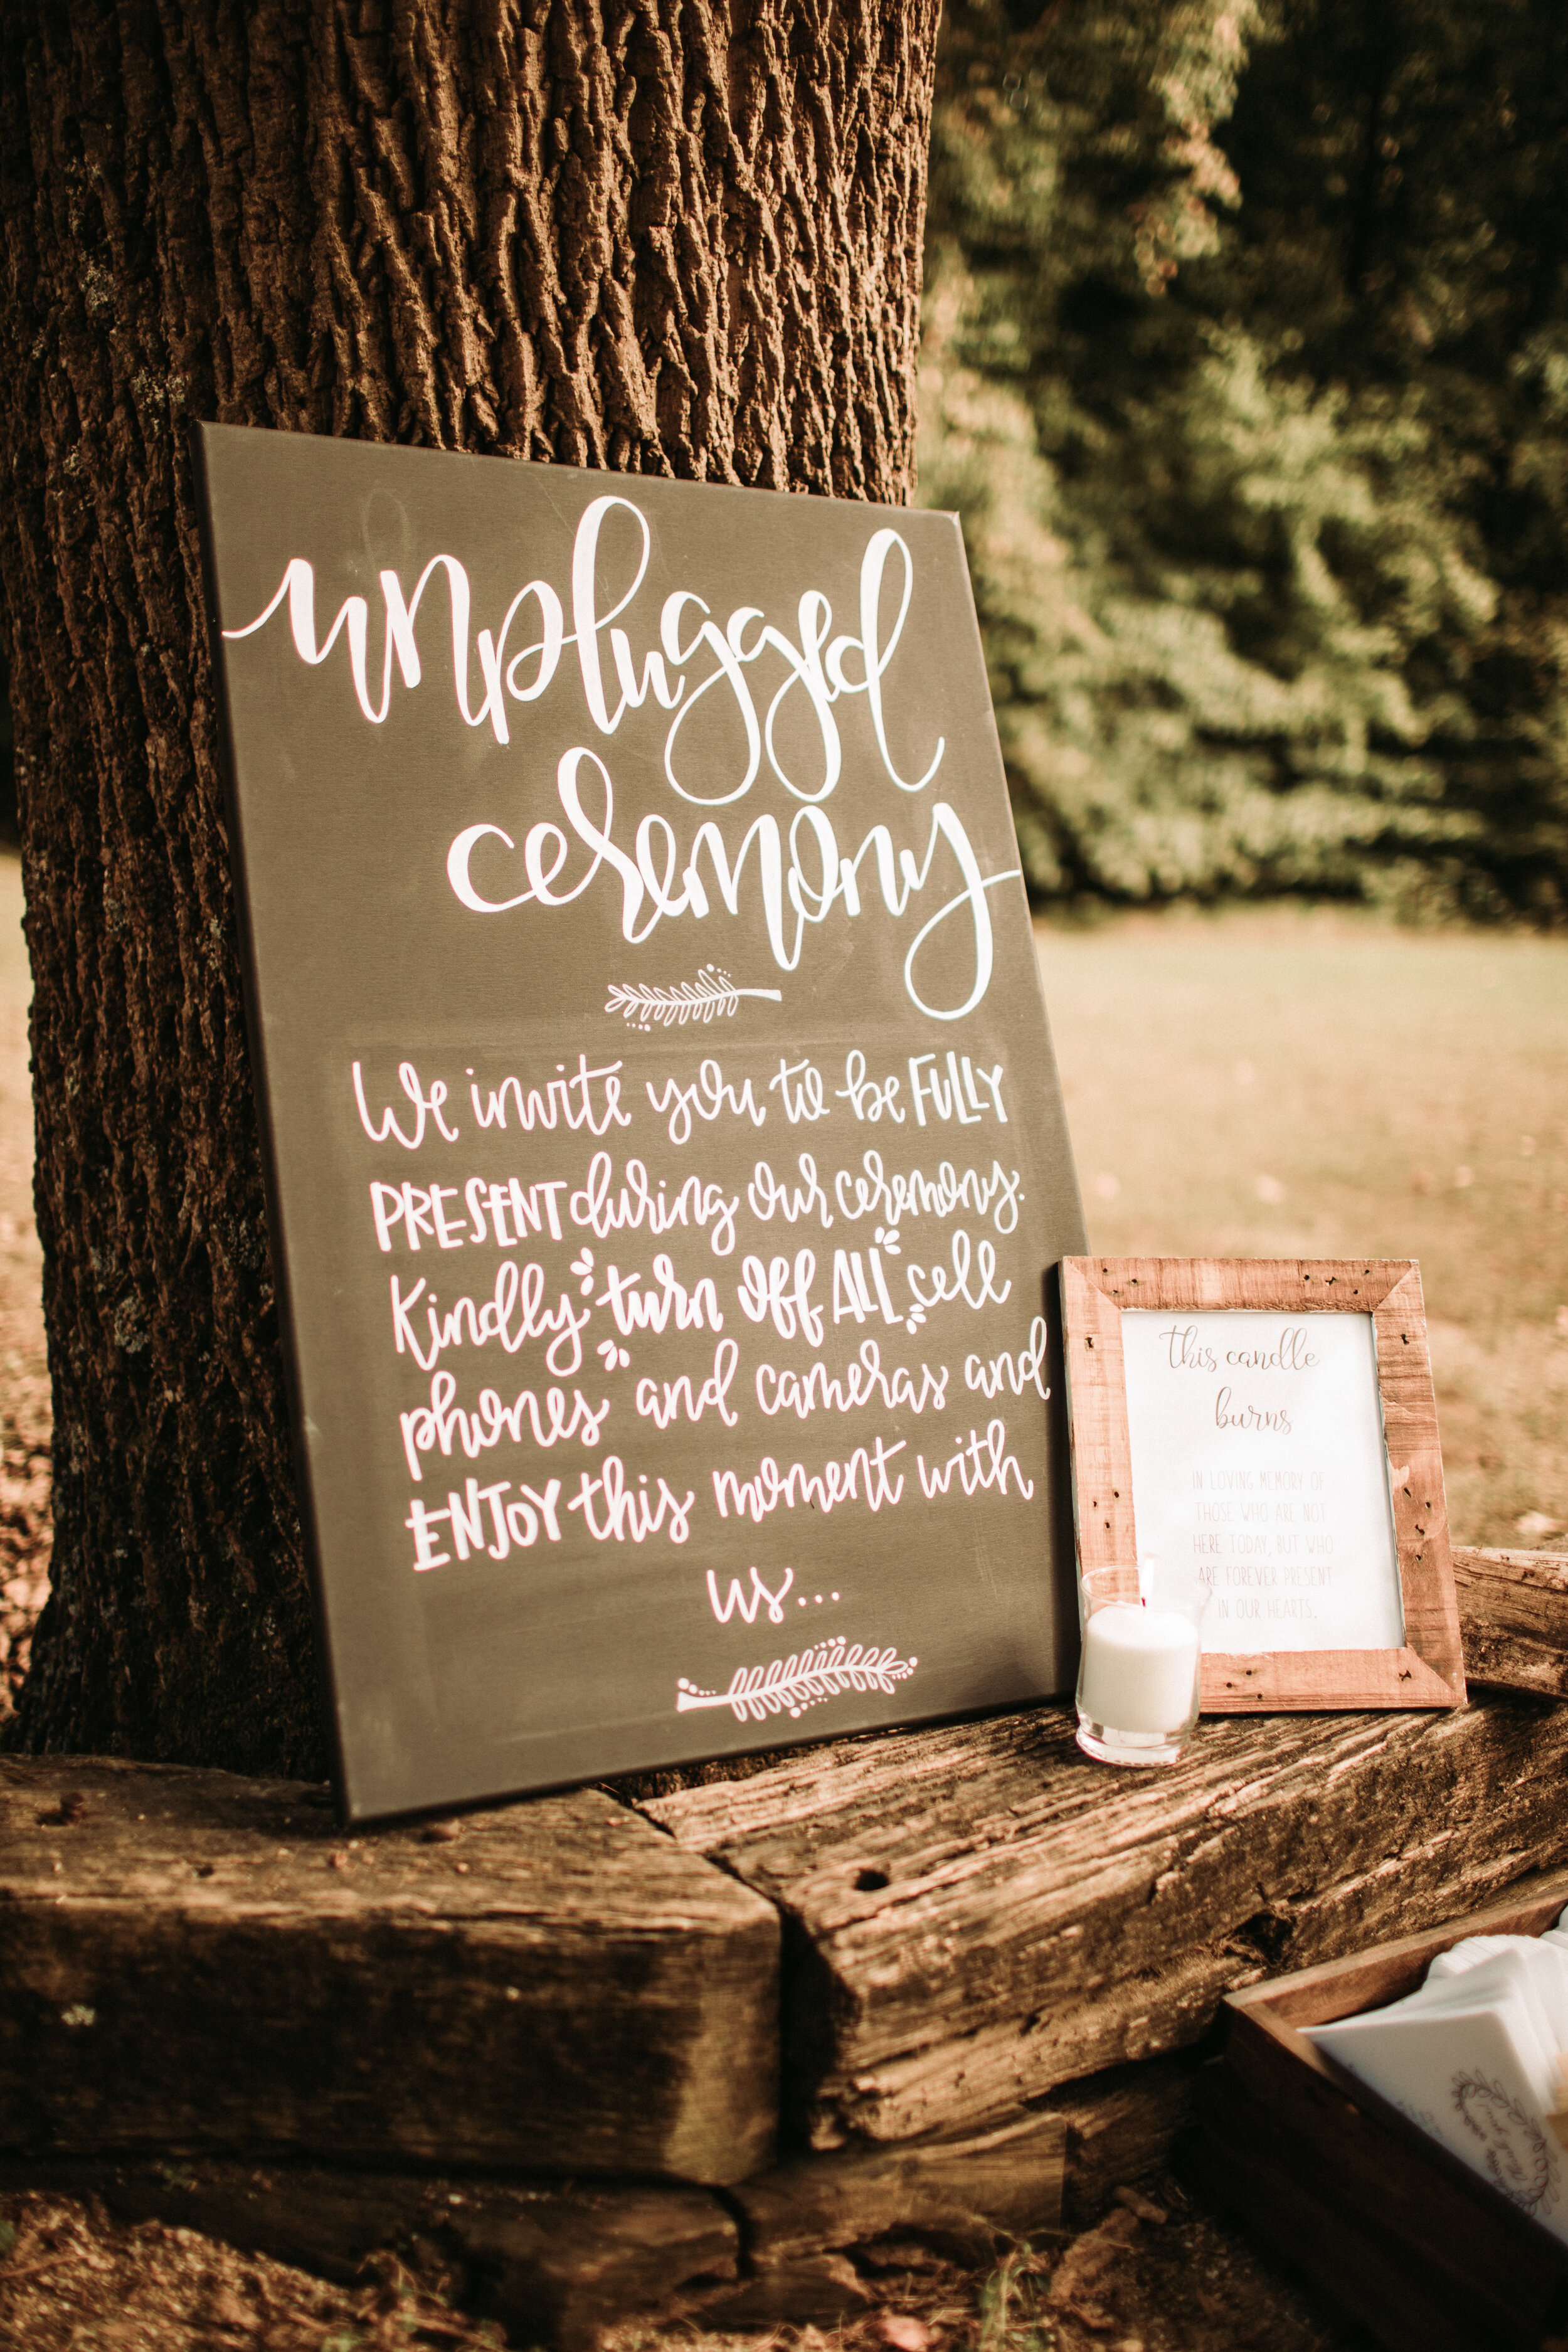 unplugged
ceremony
We invite you to be FULLY
PRESENT during our ceremony.
Kindly turn off ALL cell
phones and cameras and
ENJOY this moment with
us...
This candle
burns
IN LOVING MEMORY OF
THOSE WHO ARE NOT
HERE TODAY, BUT WHO
ARE FOREVER PRESENT
IN OUR HEARTS.